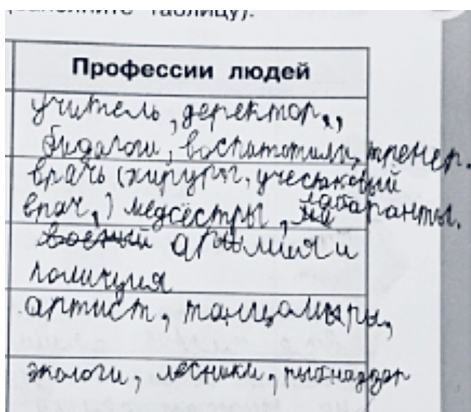 (заполните таблицу).
Профессии людей
учитель, деректор,,
бидогои, воспатотили, тренер.
врачь (хирурги, уческовый
врач,) медсёстры, лабаранты.
военый армия и
полиция
артист, танцомиры,
экологи, лесники, рыбнадзор